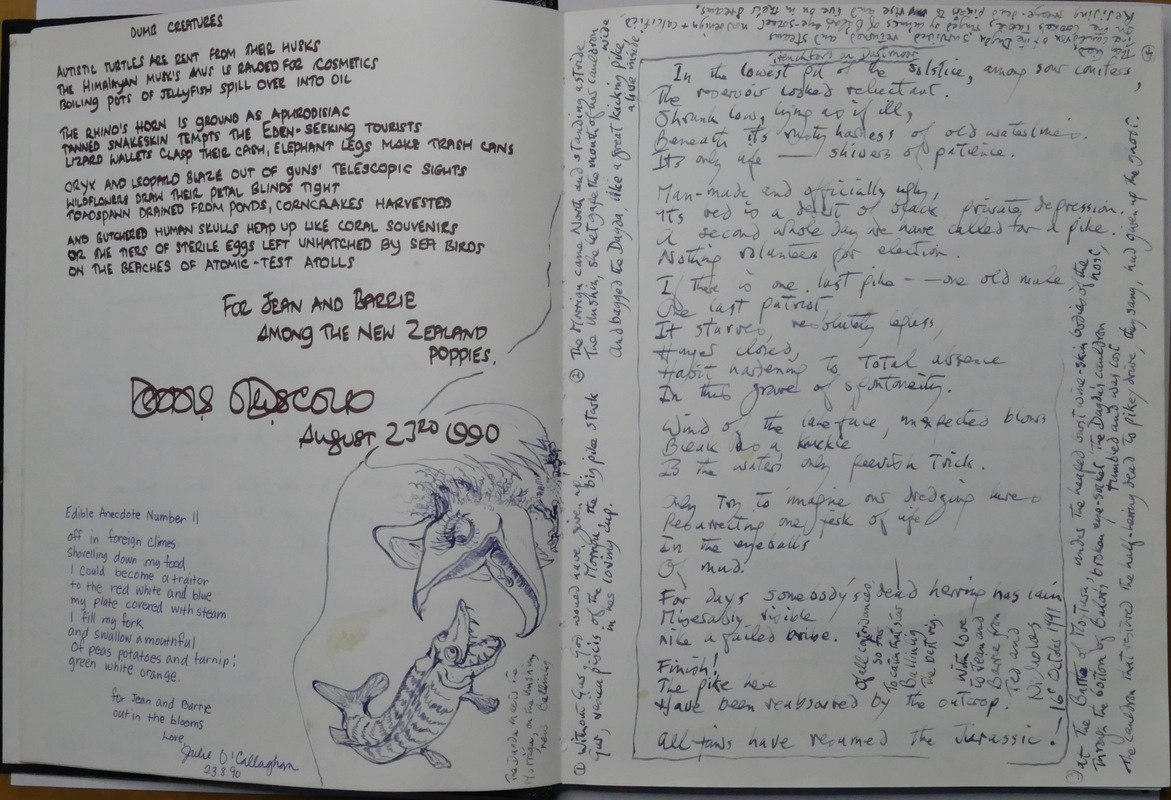 DUMB CREATURES
AUTISTIC TURTLES ARE RENT FROM THEIR HUSKS
THE HIMALAYAN MUSK'S ANUS IS RAIDED FOR COSMETICS
BOILING POTS OF JELLYFISH SPILL OVER INTO OIL
THE RHINO'S HORN IS GROUND AS APHRODISIAC
TANNED SNAKESKIN TEMPTS THE EDEN-SEEKING TOURISTS
LIZARD WALLETS CLASP THEIR CASH, ELEPHANT LEGS MAKE TRASH CANS
ORYX AND LEOPARD BLAZE OUT OF GUNS' TELESCOPIC SIGHTS
WILDFLOWERS DRAW THEIR PETAL BLINDS TIGHT
TOADSPAWN DRAINED FROM PONDS, CORNCRAKES HARVESTED
AND BUTCHERED HUMAN SKULLS HEAP UP LIKE CORAL SOUVENIRS
OR THE TIERS OF STERILE EGGS LEFT UNHATCHED BY SEA BIRDS
ON THE BEACHES OF ATOMIC-TEST ATOLLS
FOR JEAN AND BARRIE
AMONG THE NEW ZEALAND
POPPIES.
AUGUST 23RD 1990
Edible Anecdote Number 11
off in foreign climes
shovelling down my food
I could become a traitor
to the red white and blue
my plate covered with steam
I fill my fork
and swallow a mouthful
of peas potatoes and turnip;
green white orange.
for Jean and Barrie
out in the blooms
Love
Julie O'Callaghan
23.8.90
The Dagda meets the
Morrigu on the Unshin
near Ballina
① Without Gus, God would have given up
Gus, seven pixels of the Morrigu, the big pike stark
in his loving cup.
② The Morrigu came North and standing astride
The Unshin, she let gape the mouth of his cauldron wide
And bagged the Dagda, like a great kicking pike,
alive inside.
In the lowest pit of the solstice, among sour conifers,
The reservoir looked reluctant.
Shrunk low, lying as if ill,
Beneath its rusty harness of old waterlines.
Its only life — shivers of patience.
Man-made and officially ugly,
Its bed is a desert of black private depression.
A second whole Day we have called for a pike.
Nothing volunteers for election.
If there is one last pike — one old mule
One last patriot,
It starves, resolutely legless,
Hinges closed,
Habit hardening to total absence
In this grave of spontaneity.
Wind off the lake-face, unexpected blows
Bleak as a knuckle
Is the water's only peevish trick.
Only try to imagine our dredging lures
Resurrecting one jerk of life
In the eyeballs
Of mud.
For Days somebody's dead herring has lain
Miserably visible
Like a failed bribe.
Finish!
The pike here
Have been reabsorbed by the outcrop.
All jaws have resumed the Jurassic.
Of all contrivances
so far
to catch that star
Balling
The Dot rig.
With love
to Jean and
Barrie from
Ted and
Nicholas
16 October 1991
③ at the Battle of Moytura, under the heaped burst wine-skin bodies of the host,
Through the bottom of Balor's broken eye-socket the Dagda's cauldron
tumbled and was lost
The cauldron that restored the half-herring dead to pike / desire, they sang, had given up the ghost.
④